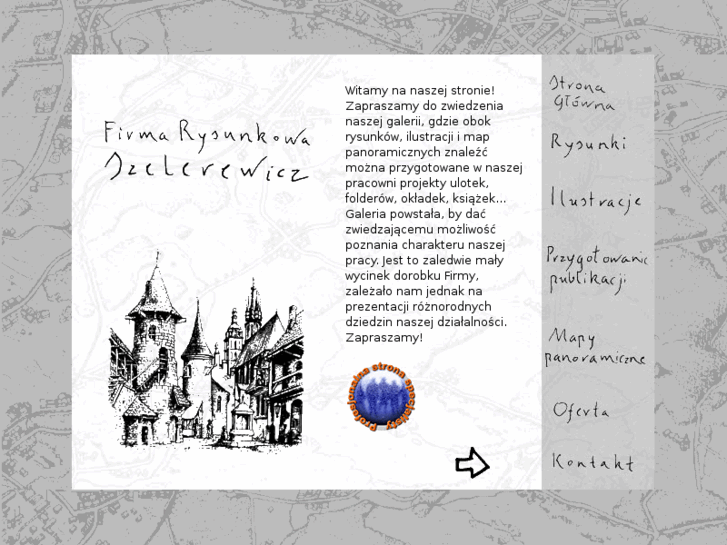 Firma Rysunkowa
Szelerewicz
Witamy na naszej stronie!
Zapraszamy do zwiedzenia
naszej galerii, gdzie obok
rysunków, ilustracji i map
panoramicznych znaleźć
można przygotowane w naszej
pracowni projekty ulotek,
folderów, okładek, książek...
Galeria powstała, by dać
zwiedzającemu możliwość
poznania charakteru naszej
pracy. Jest to zaledwie mały
wycinek dorobku Firmy,
zależało nam jednak na
prezentacji różnorodnych
dziedzin naszej działalności.
Zapraszamy!
Profesjonalna strona specjalisty
Strona
Główna
Rysunki
Ilustracje
Przygotowanie
publikacji
Mapy
panoramiczne
Oferta
Kontakt